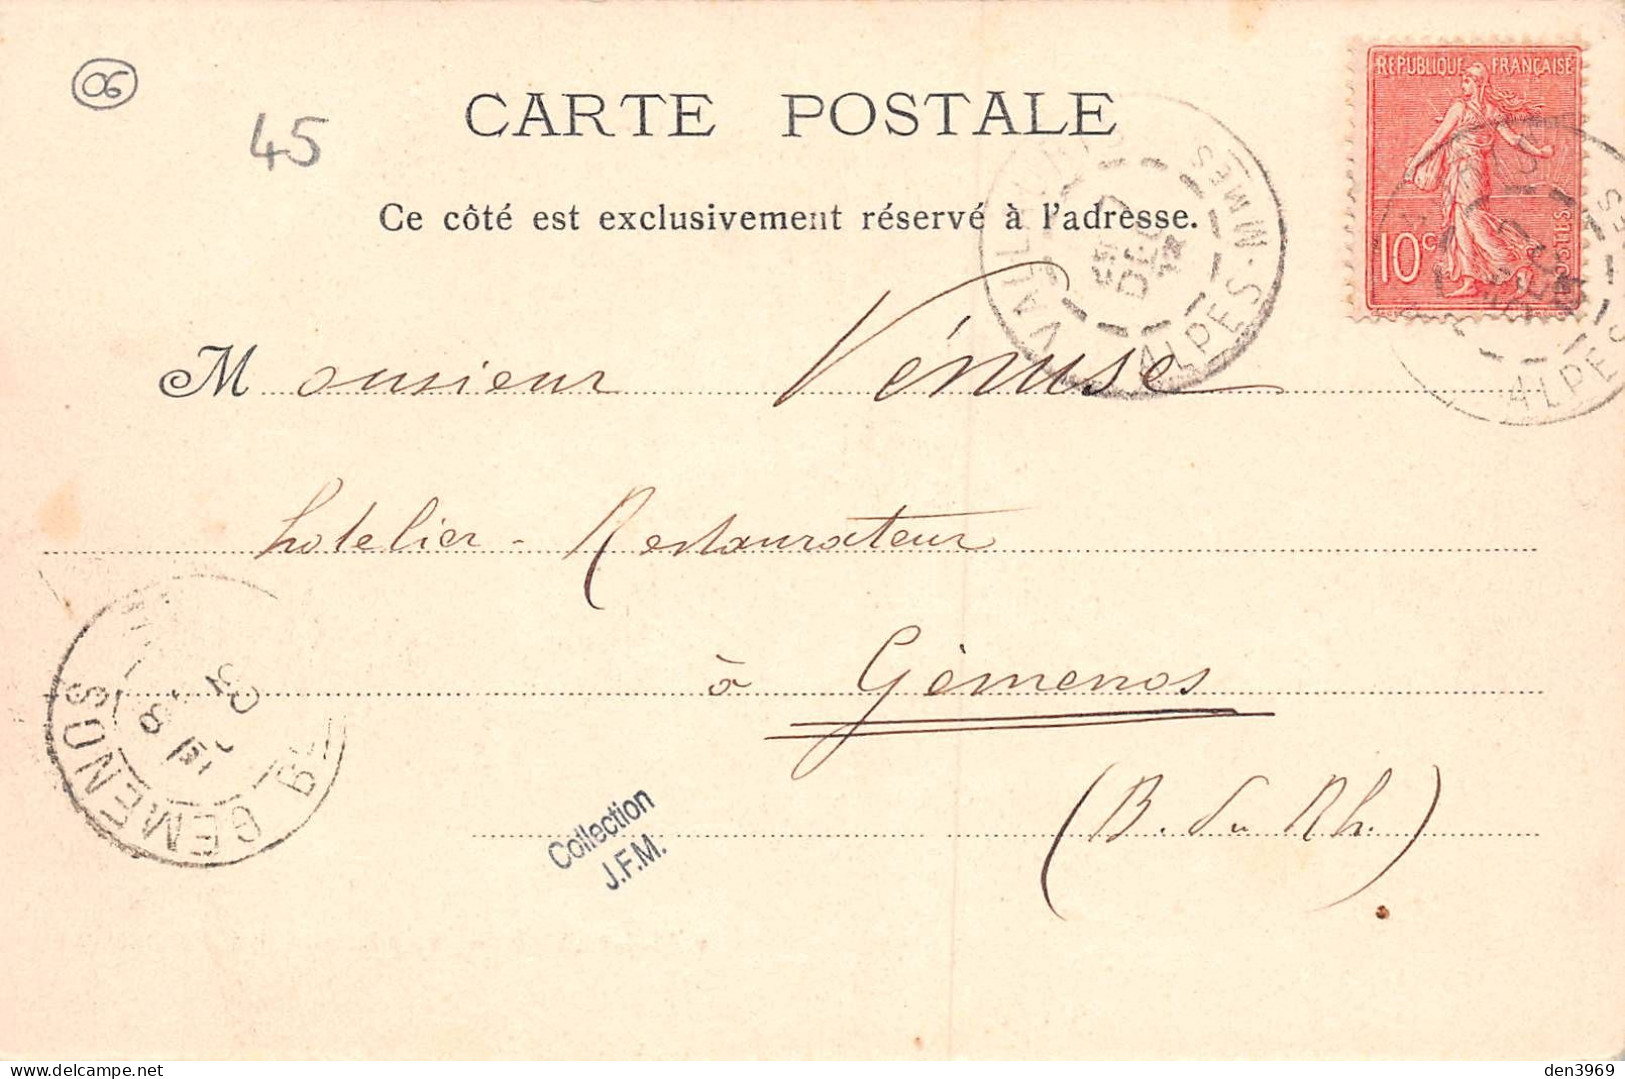 06
45
CARTE POSTALE
Ce côté est exclusivement réservé à l'adresse.
REPUBLIQUE FRANÇAISE
10c
POSTES
ALPES-MMES
DEC
ALPES
Monsieur Vénuse
hotelier - Restaurateur
à Gémenos
(B. du Rh.)
GEMENOS
03
Collection
J.F.M.
den3969